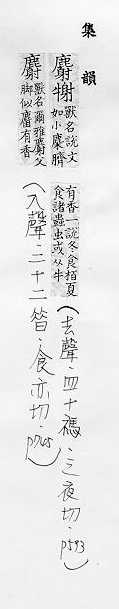 集韻
麝
獸名說文
如小麋臍
有香一說冬食栢夏
食諸蟲虫或从牛
（去聲．四十禡．之夜切．p593）
麝
獸名爾雅麝父
脚似麕有香
（入聲．二十二昔．食亦切．p745）